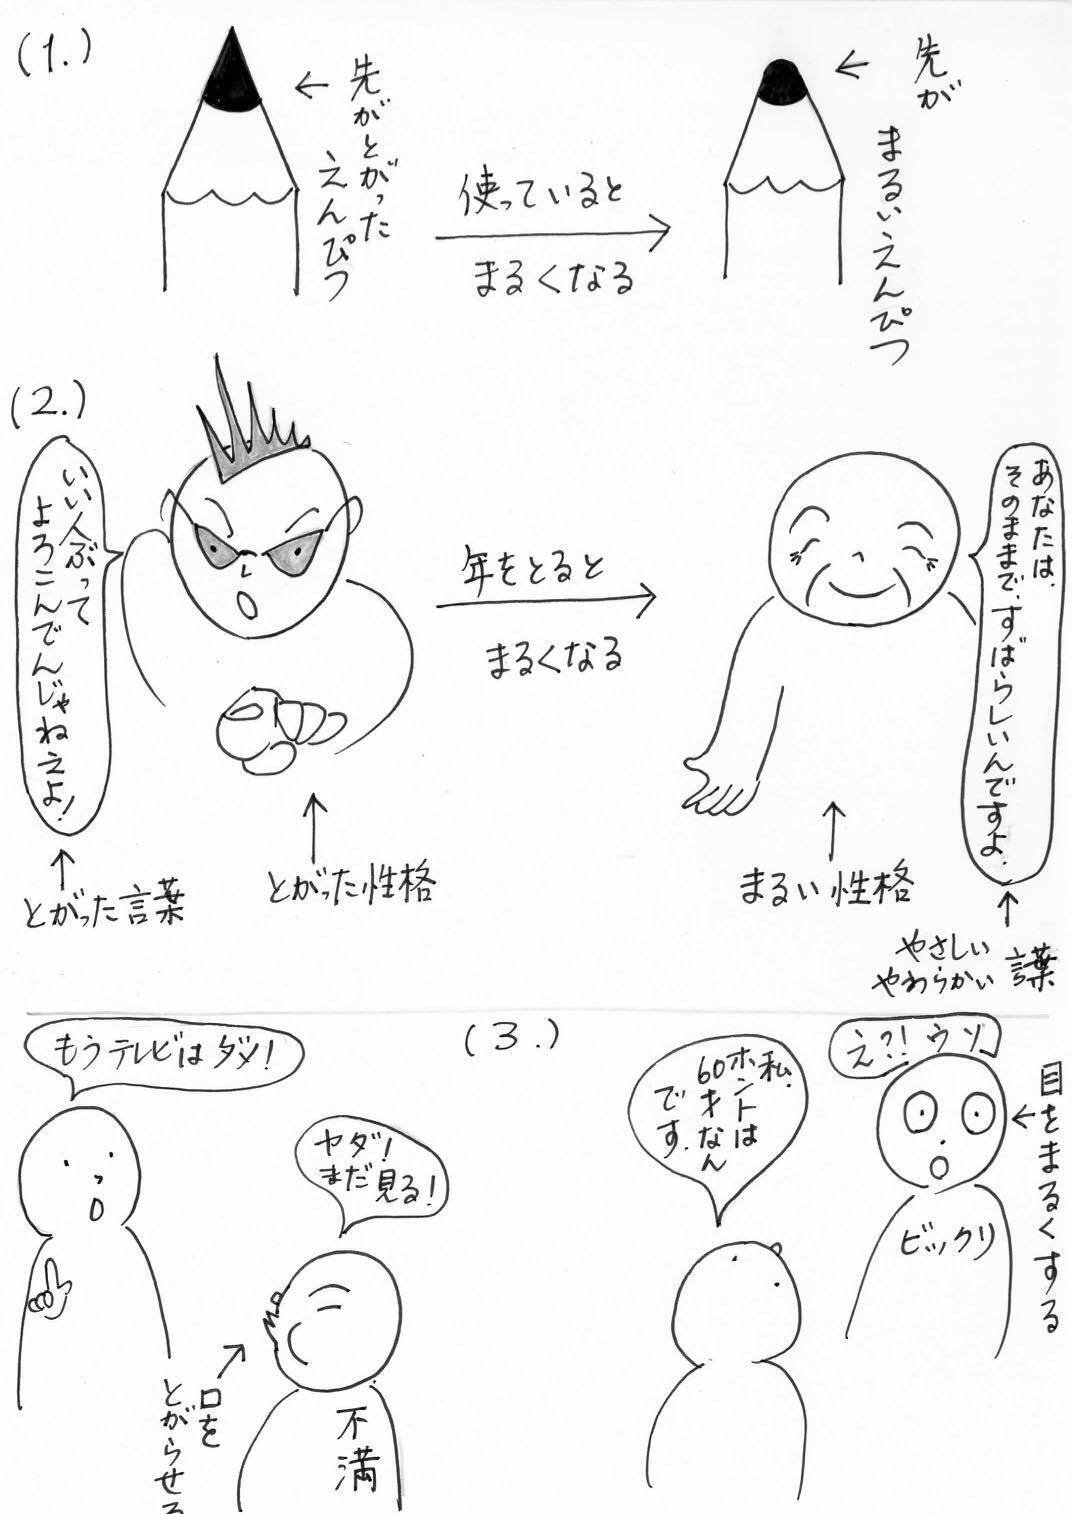 (1.)
先がとがった
えんぴつ
使っていると
まるくなる
先が
まるいえんぴつ
(2.)
いい人ぶって
よろこんでんじゃねえよ!
とがった言葉
とがった性格
年をとると
まるくなる
あなたは、
そのままで、すばらしいんですよ、
まるい性格
やさしい
やわらかい 言葉
(3.)
もうテレビはダメ!
ヤダ!
まだ見る!
口を
とがらせる
不満
私、
ホントは
60才なん
です、
え?!ウソ
目をまるくする
ビックリ